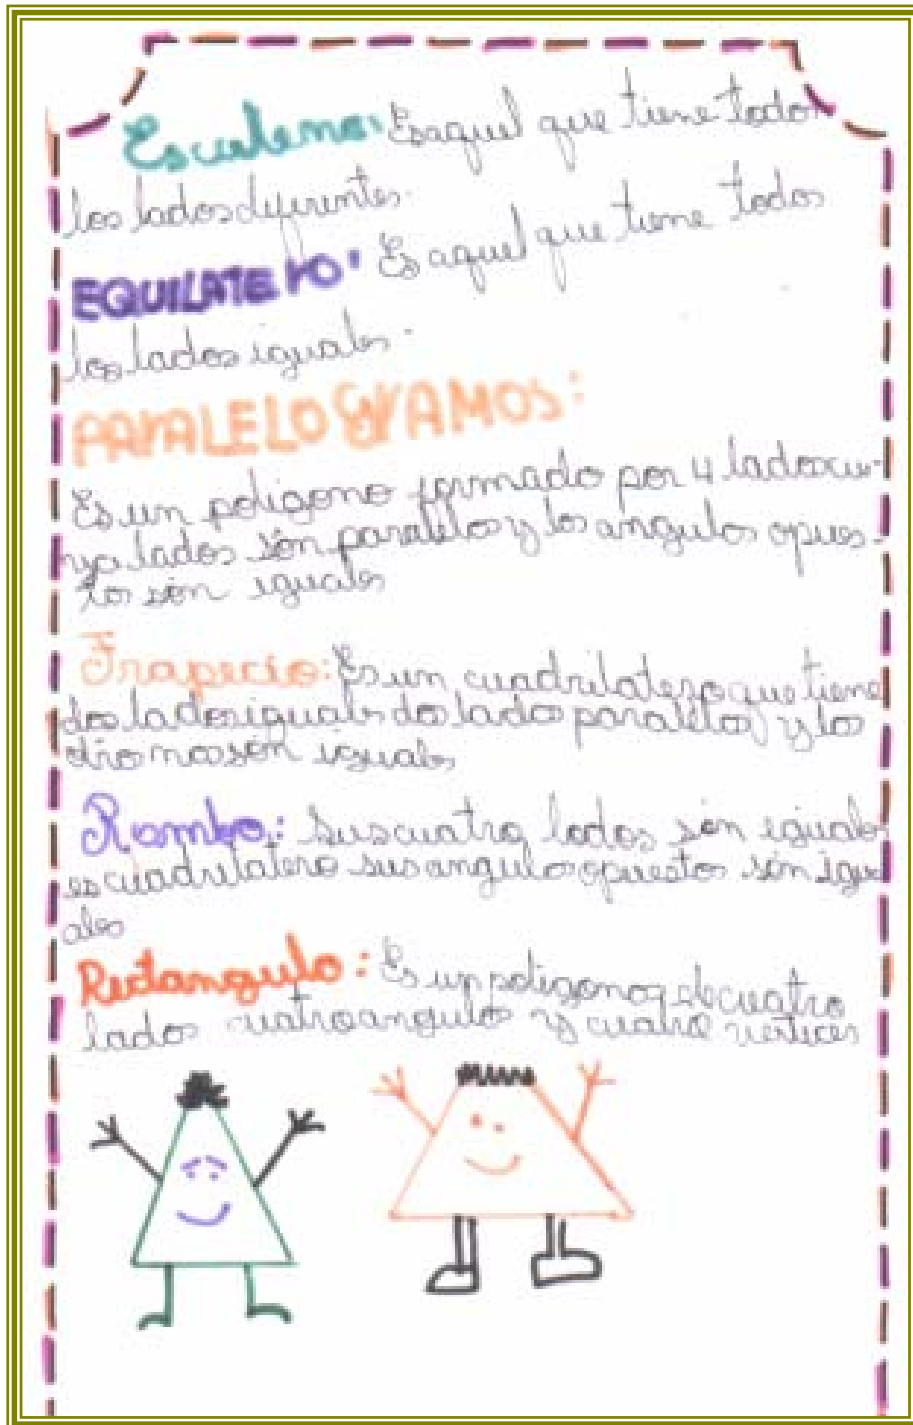 Escaleno: Es aquel que tiene todos
los lados diferentes.
EQUILATERO: Es aquel que tiene todos
los lados iguales.
PARALELOGRAMOS:
Es un poligono formado por 4 lados cu-
yos lados són paralelos y los angulos opues-
tos són iguales
Trapecio: Es un cuadrilatero que tiene
dos lados iguales dos lados paralelos y los
otro no són iguales
Rombo: Sus cuatro lados són iguales
es cuadrilatero sus angulos opuestos són igu
ales
Rectangulo: Es un poligono de cuatro
lados cuatro angulos y cuatro vertices